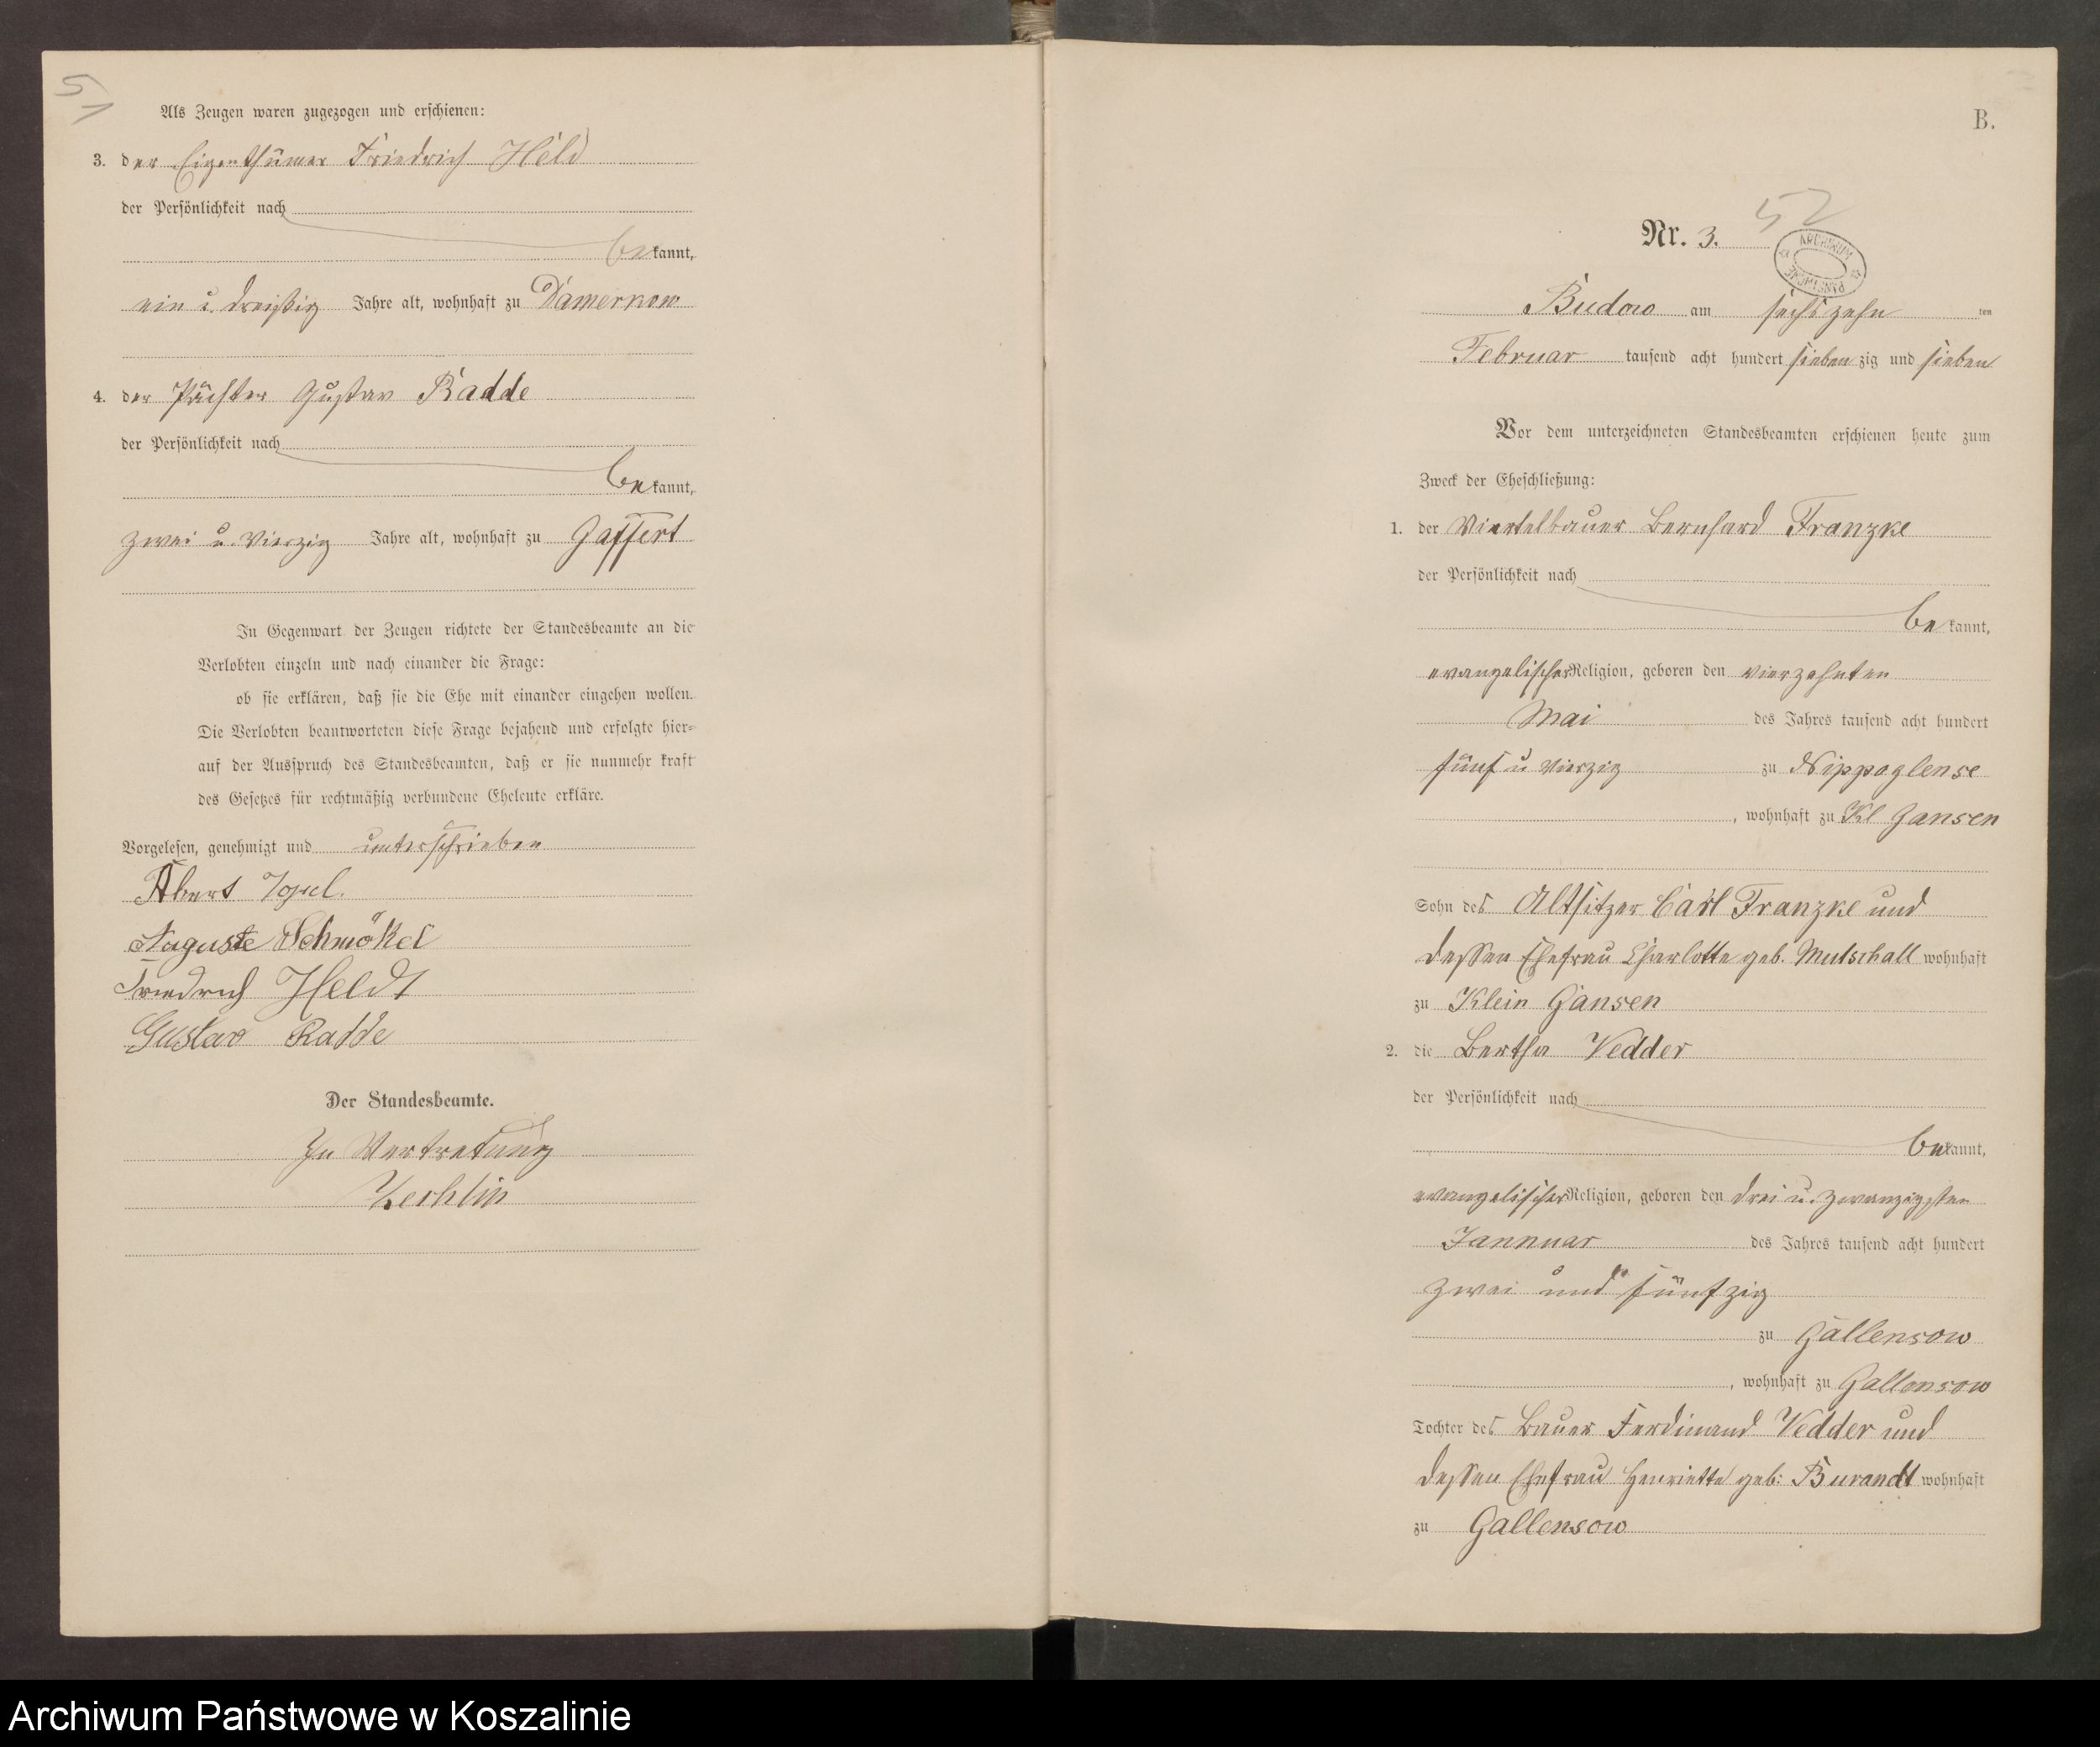 51
Als Zeugen waren zugezogen und erschienen:
3. der Eigenthümer Friedrich Held
der Persönlichkeit nach
bekannt,
ein u. dreißig Jahre alt, wohnhaft zu Damerkow
4. der Pächter Gustav Radde
der Persönlichkeit nach
bekannt,
zwei u. vierzig Jahre alt, wohnhaft zu Gaffert
In Gegenwart der Zeugen richtete der Standesbeamte an die
Verlobten einzeln und nach einander die Frage:
ob sie erklären, daß sie die Ehe mit einander eingehen wollen.
Die Verlobten beantworteten diese Frage bejahend und erfolgte hier-
auf der Ausspruch des Standesbeamten, daß er sie nunmehr kraft
des Gesetzes für rechtmäßig verbundene Eheleute erkläre.
Vorgelesen, genehmigt und unterschrieben
Auguste Schmökel
Friedrich Heldt
Gustav Radde
Der Standesbeamte.
In Vertretung
Zechlin
B.
52
Nr. 3.
ARCHIWUM PAŃSTWOWE
Budow am sechszehn ten
Februar tausend acht hundert siebenzig und sieben
Vor dem unterzeichneten Standesbeamten erschienen heute zum
Zweck der Eheschließung:
1. der Viertelbauer Bernhard Franzke
der Persönlichkeit nach
bekannt,
evangelischer Religion, geboren den vierzehnten
Mai des Jahres tausend acht hundert
fünf u vierzig zu Nippoglense
, wohnhaft zu Kl Gansen
Sohn des Altsitzer Carl Franzke und
dessen Ehefrau Charlotte geb. Mutschall wohnhaft
zu Klein Gansen
2. die Bertha Vedder
der Persönlichkeit nach
bekannt,
evangelischer Religion, geboren den drei u. zwanzigsten
Jannuar des Jahres tausend acht hundert
zwei und fünfzig
zu Gallensow
, wohnhaft zu Gallensow
Tochter des Bauer Ferdinand Vedder und
dessen Ehefrau Henriette geb: Burandt wohnhaft
zu Gallensow
Archiwum Państwowe w Koszalinie